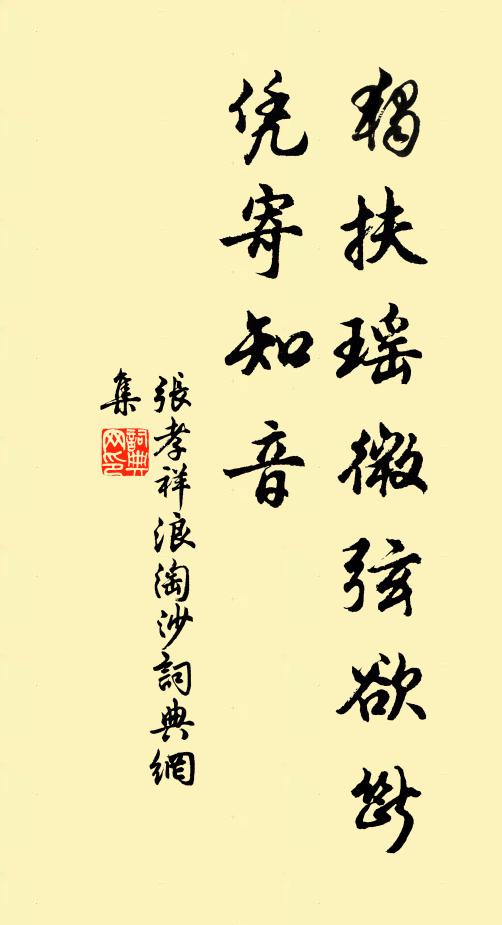 獨扶瑶徽弦欲斷
凭寄知音
張孝祥浪淘沙詞典網
集
詞典网印